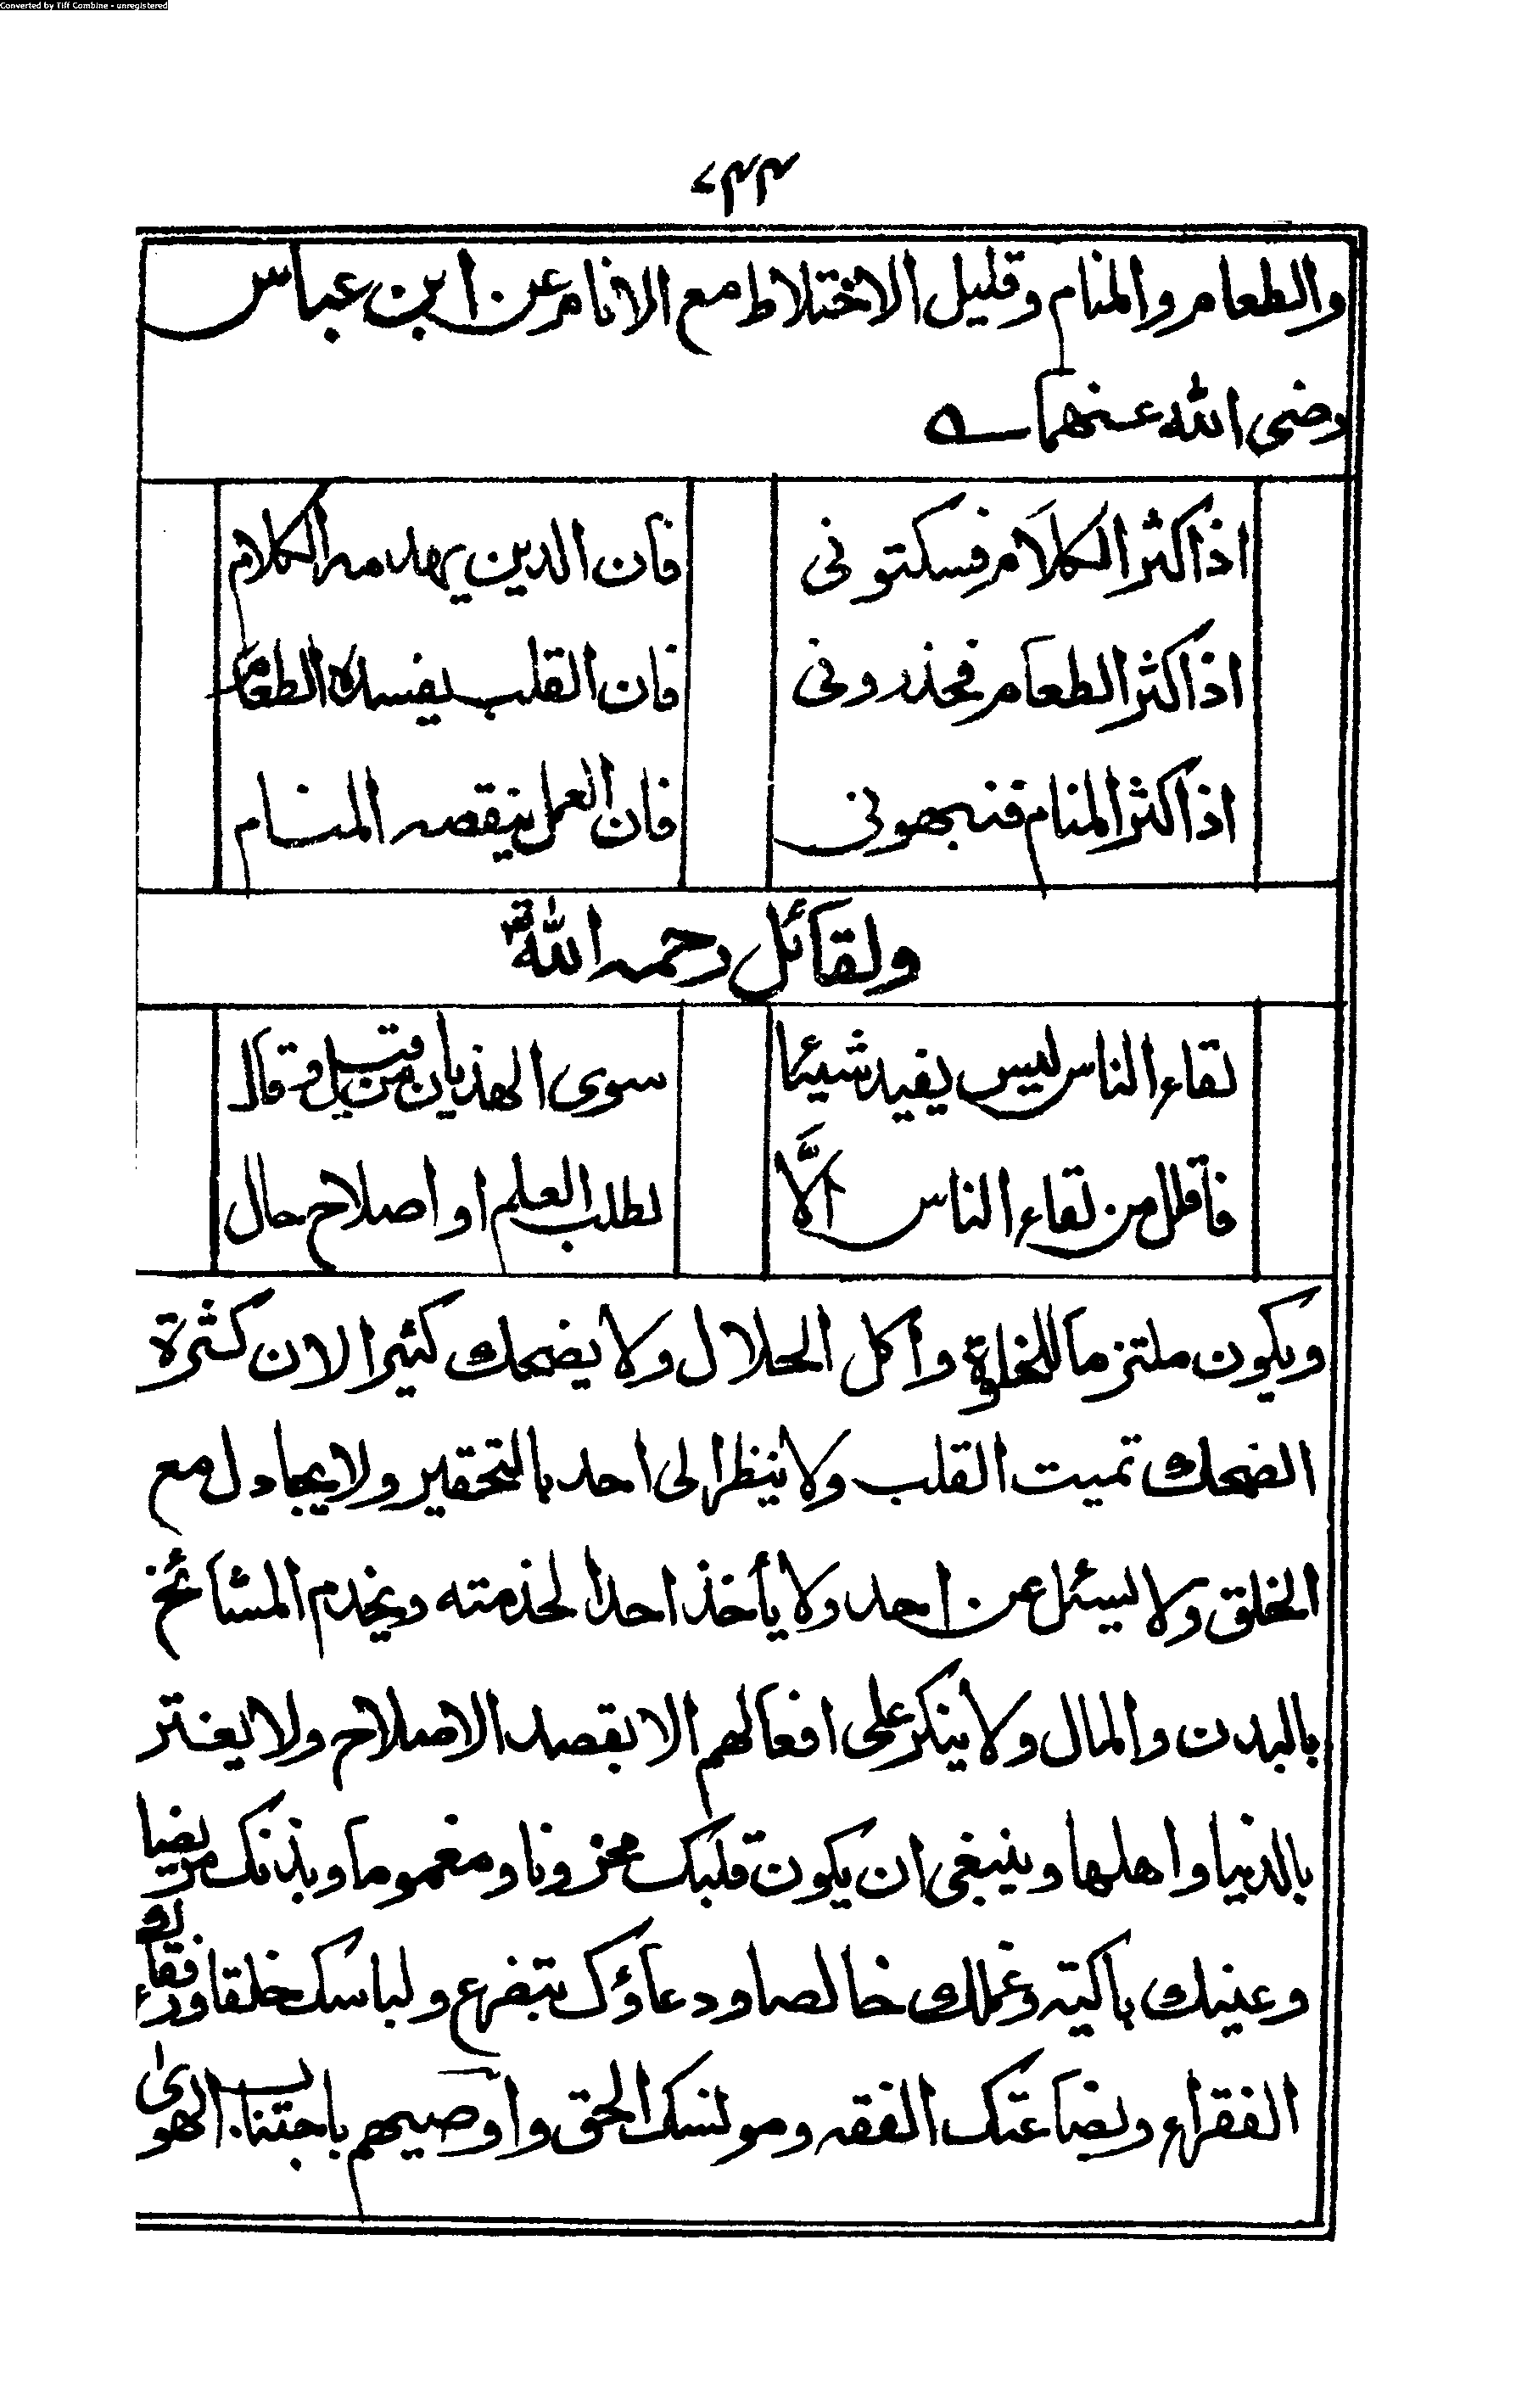 Converted by Tiff Combine - unregistered
۷۴۴
والطعام والمنام وقليل الاختلاط مع الانام عن ابن عباس
رضى الله عنهما
اذا كثر الكلَام فسكتونى فان الدين يهدمه الكلام
اذا كثر الطعام فحذرونى فان القلب يفسده الطعام
اذا كثر المنام فنبهونى فان العمل ينقصه المنام
ولقائل رحمه الله
لقاء الناس ليس يفيد شيئا سوى الهذيان من قيل وقال
فاقلل من لقاء الناس الَّا لطلب العلم او اصلاح حال
ويكون ملتزما للخلوة وأكل الحلال ولا يضحك كثيرا لان كثرة
الضحك تميت القلب ولا ينظر الى احد بالتحقير ولا يجادل مع
الخلق ولا يسئل عن احد ولا يأخذ احدا لخدمته ويخدم المشائخ
بالبدن والمال ولا ينكر على افعالهم الا بقصد الاصلاح ولا يغتر
بالدنيا واهلها وينبغى ان يكون قلبك محزونا ومغموما وبدنك مريضا
وعينك باكية وعملك خالصا ودعاؤك بتضرع ولباسك خلقا ورفقاؤك
الفقراء وبضاعتك الفقه ومونسك الحق واوصيهم باجتناب الهوىٰ